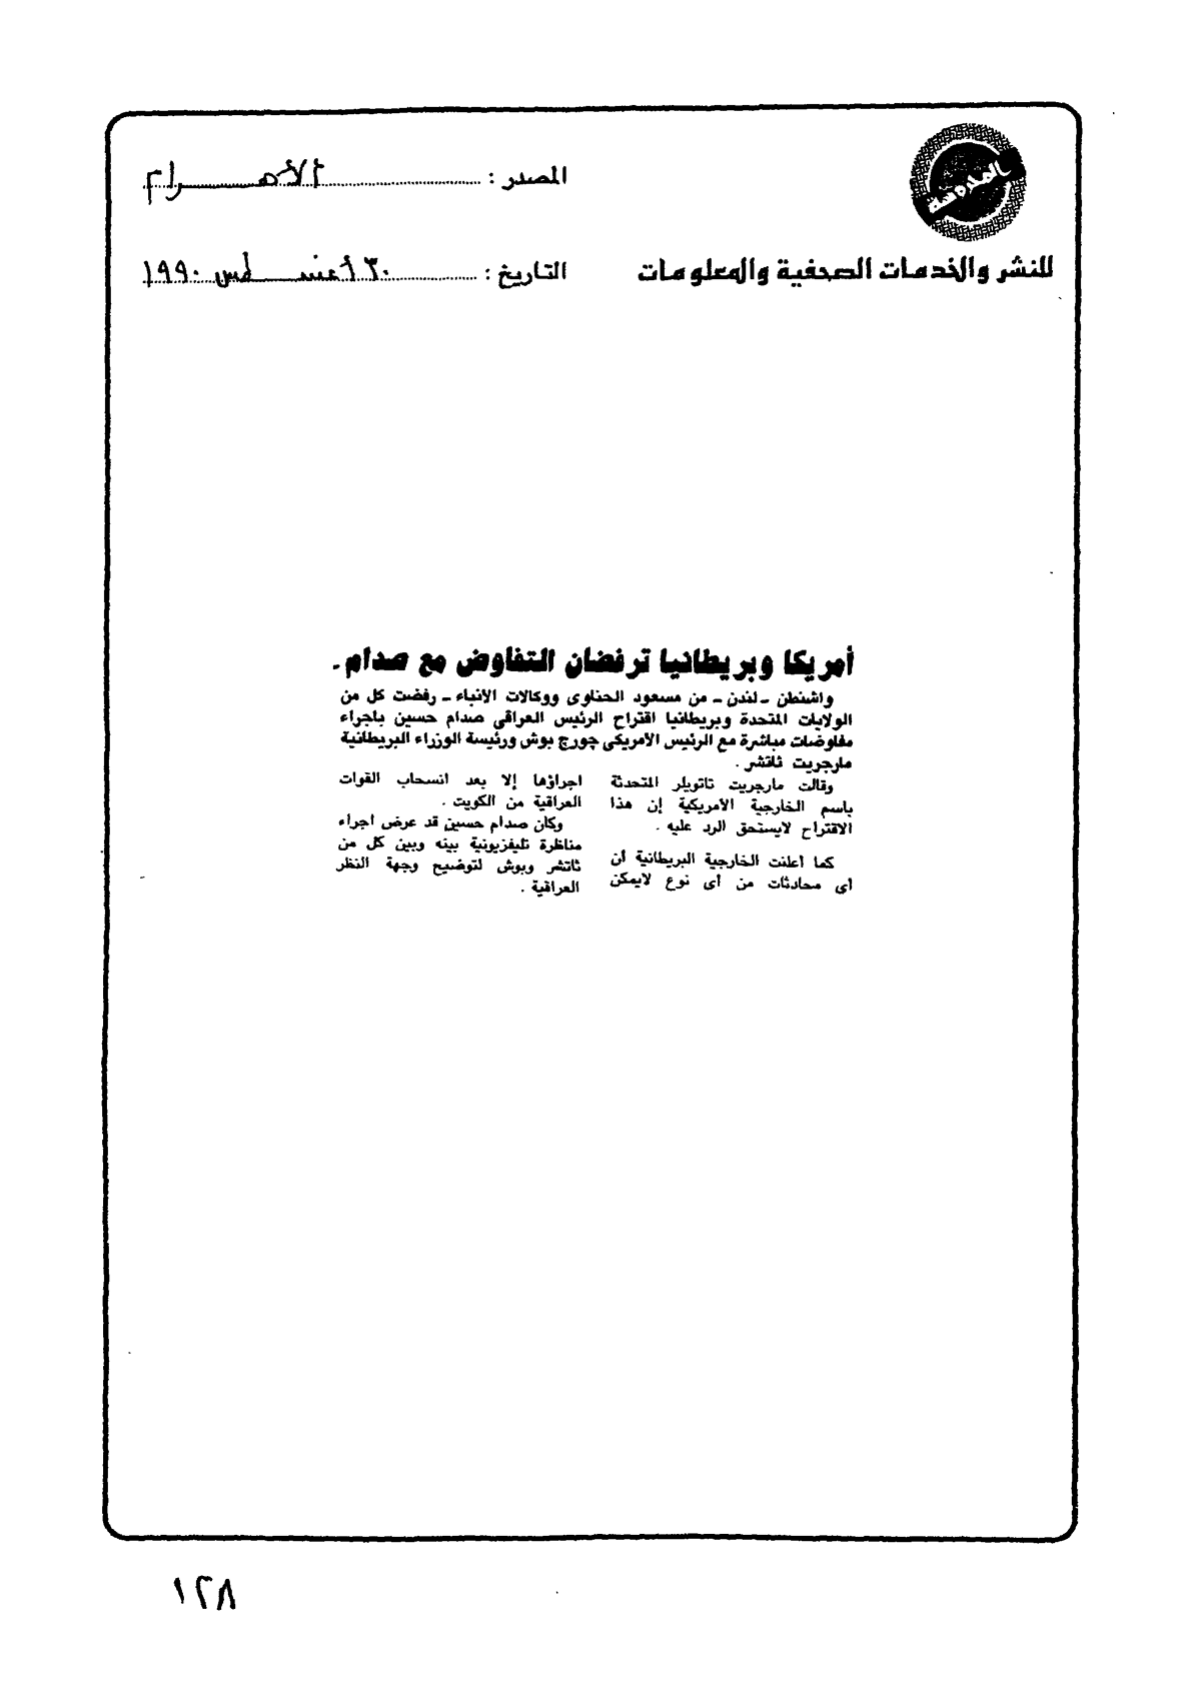 المصدر : الأهرام
للنشر والخدمات الصحفية والمعلومات
التاريخ : ٣٠ أغسطس ١٩٩٠
أمريكا وبريطانيا ترفضان التفاوض مع صدام .
واشنطن ـ لندن ـ من مسعود الحناوى ووكالات الانباء ـ رفضت كل من
الولايات المتحدة وبريطانيا اقتراح الرئيس العراقى صدام حسين باجراء
مفاوضات مباشرة مع الرئيس الامريكى جورج بوش ورئيسة الوزراء البريطانية
مارجريت ثاتشر .
وقالت مارجريت تاتويلر المتحدثة
باسم الخارجية الامريكية إن هذا
الاقتراح لايستحق الرد عليه .
كما أعلنت الخارجية البريطانية أن
أى محادثات من أى نوع لايمكن
اجراؤها إلا بعد انسحاب القوات
العراقية من الكويت .
وكان صدام حسين قد عرض اجراء
مناظرة تليفزيونية بينه وبين كل من
ثاتشر وبوش لتوضيح وجهة النظر
العراقية .
١٢٨